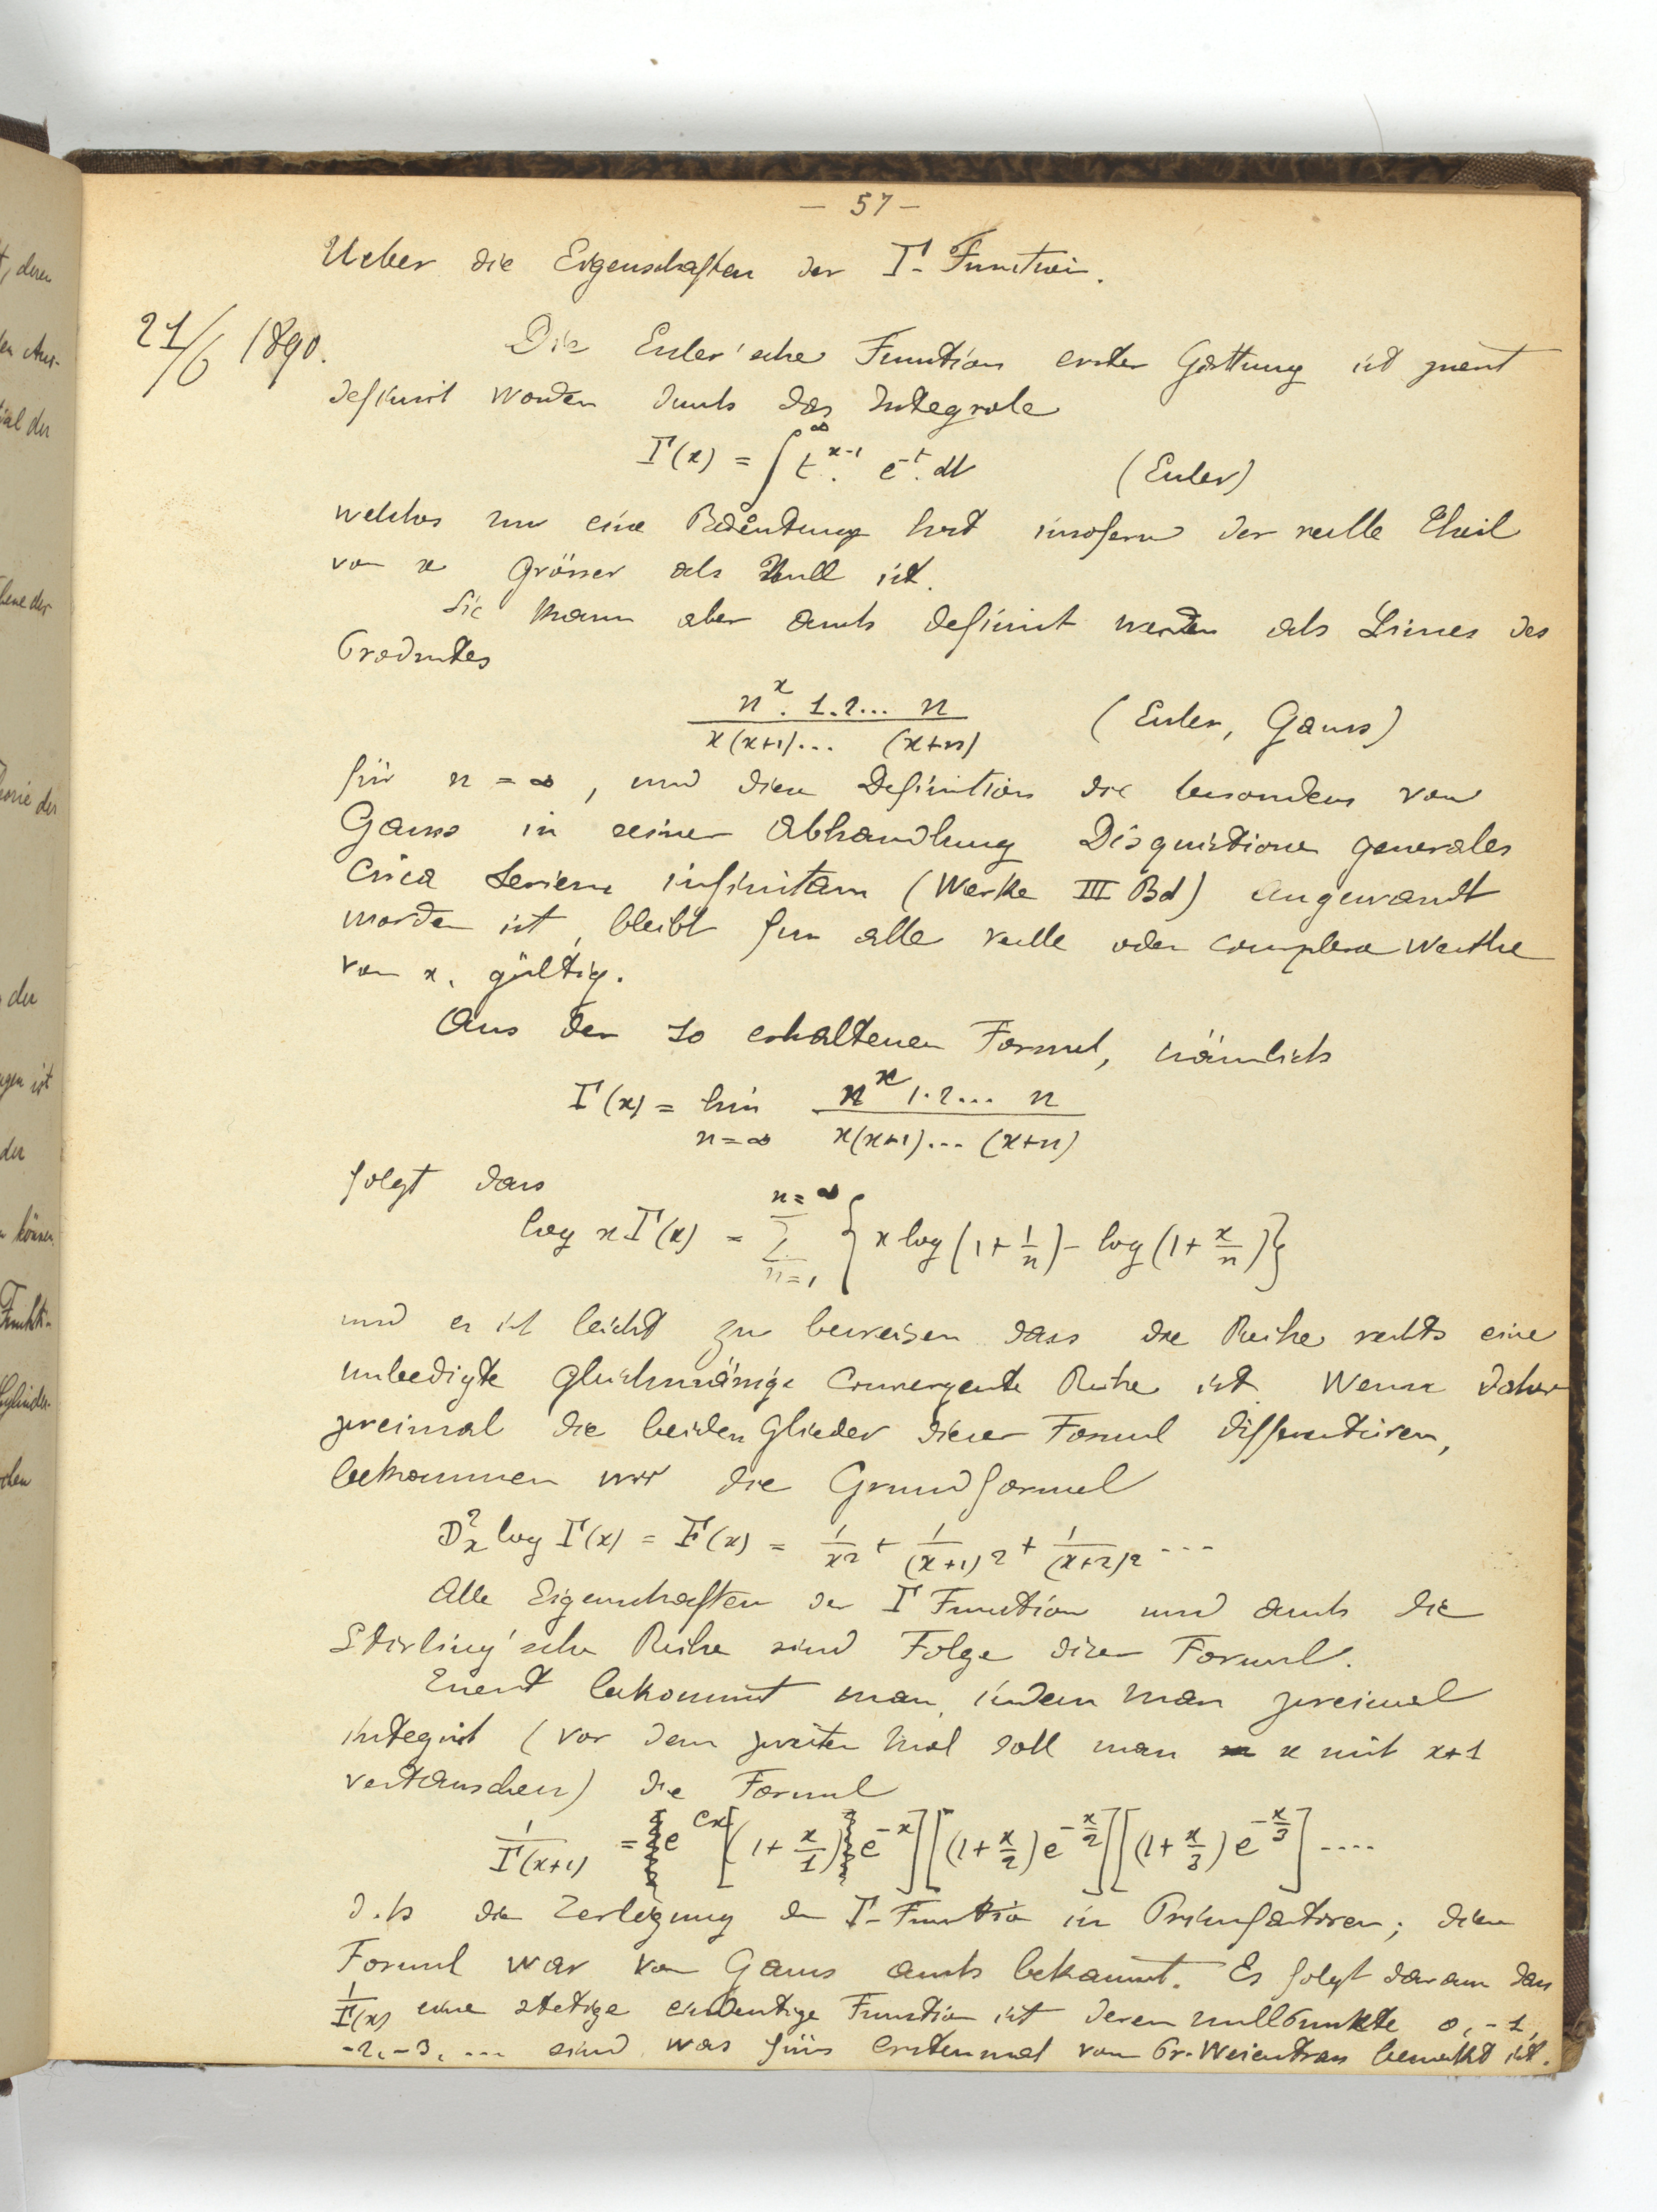 - 57 -
Ueber die Eigenschaften der Γ-Function.
21/6 1890.
Die Euler'sche Function erster Gattung ist zuerst
definirt worden durch das Integrale
Γ(x) = ∫^∞ t^{x-1}. e^{-t}. dt (Euler)
welches nur eine Bedeutung hat insofern der reelle Theil
von x grösser als Null ist.
Sie kann aber auch definirt werden als Limes des
Productes
n^x. 1.2... n / x(x+1)... (x+n) (Euler, Gauss)
für n = ∞, und diese Definition die besonders von
Gauss in seiner Abhandlung Disquisitiones generales
circa seriem infinitam (Werke III Bd) angewandt
worden ist, bleibt für alle reelle oder complexe Werthe
von x, gültig.
Aus der so erhaltenen Formel, nämlich
Γ(x) = lim_{n=∞} n^x 1.2... n / x(x+1)... (x+n)
folgt dass
log xΓ(x) = Σ_{n=1}^{n=∞} {x log(1+1/n) - log(1+x/n)}
und es ist leicht zu beweisen dass die Reihe rechts eine
unbedigte gleichmässige convergente Reihe ist. Wenn daher
zweimal die beiden Glieder dieser Formel differentiiren,
bekommen wir die Grundformel
D²ₓ log Γ(x) = F(x) = 1/x² + 1/(x+1)² + 1/(x+2)² ...
Alle Eigenschaften der Γ Function und auch die
Stirling'sche Reihe sind Folge dieser Formel.
Zuerst bekommt man, indem man zweimal
integrirt (vor dem zweiten Mal soll man x mit x+1
vertauschen) die Formel
1/Γ(x+1) = e^{Cx}[(1+x/1)e^{-x}][(1+x/2)e^{-x/2}][(1+x/3)e^{-x/3}]....
d.h die Zerlegung der Γ-Function in Primfactoren; diese
Formel war von Gauss auch bekannt. Es folgt daraus dass
1/Γ(x) eine stetige eindeutige Function ist deren Nullpunkte 0, -1,
-2, -3, ... sind was fürs erstenmal von Pr. Weierstrass bemerkt ist.